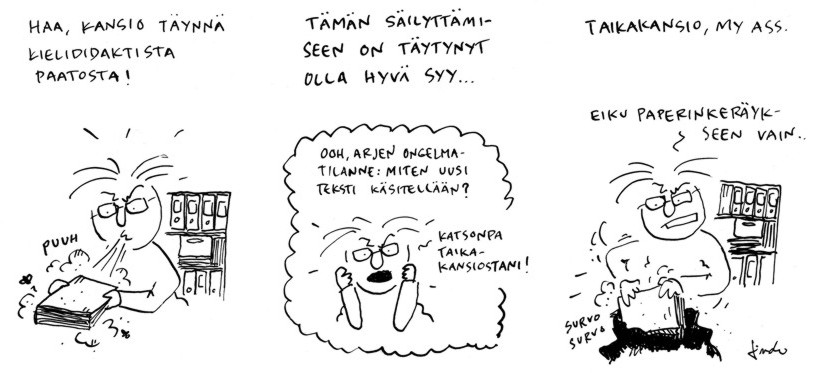 HAA, KANSIO TÄYNNÄ
KIELIDIDAKTISTA
PAATOSTA!
PUUH
TÄMÄN SÄILYTTÄMI-
SEEN ON TÄYTYNYT
OLLA HYVÄ SYY...
OOH, ARJEN ONGELMA-
TILANNE: MITEN UUSI
TEKSTI KÄSITELLÄÄN?
KATSONPA
TAIKA-
KANSIOSTANI!
TAIKAKANSIO, MY ASS.
EIKU PAPERINKERÄYK-
SEEN VAIN..
SURVO
SURVO